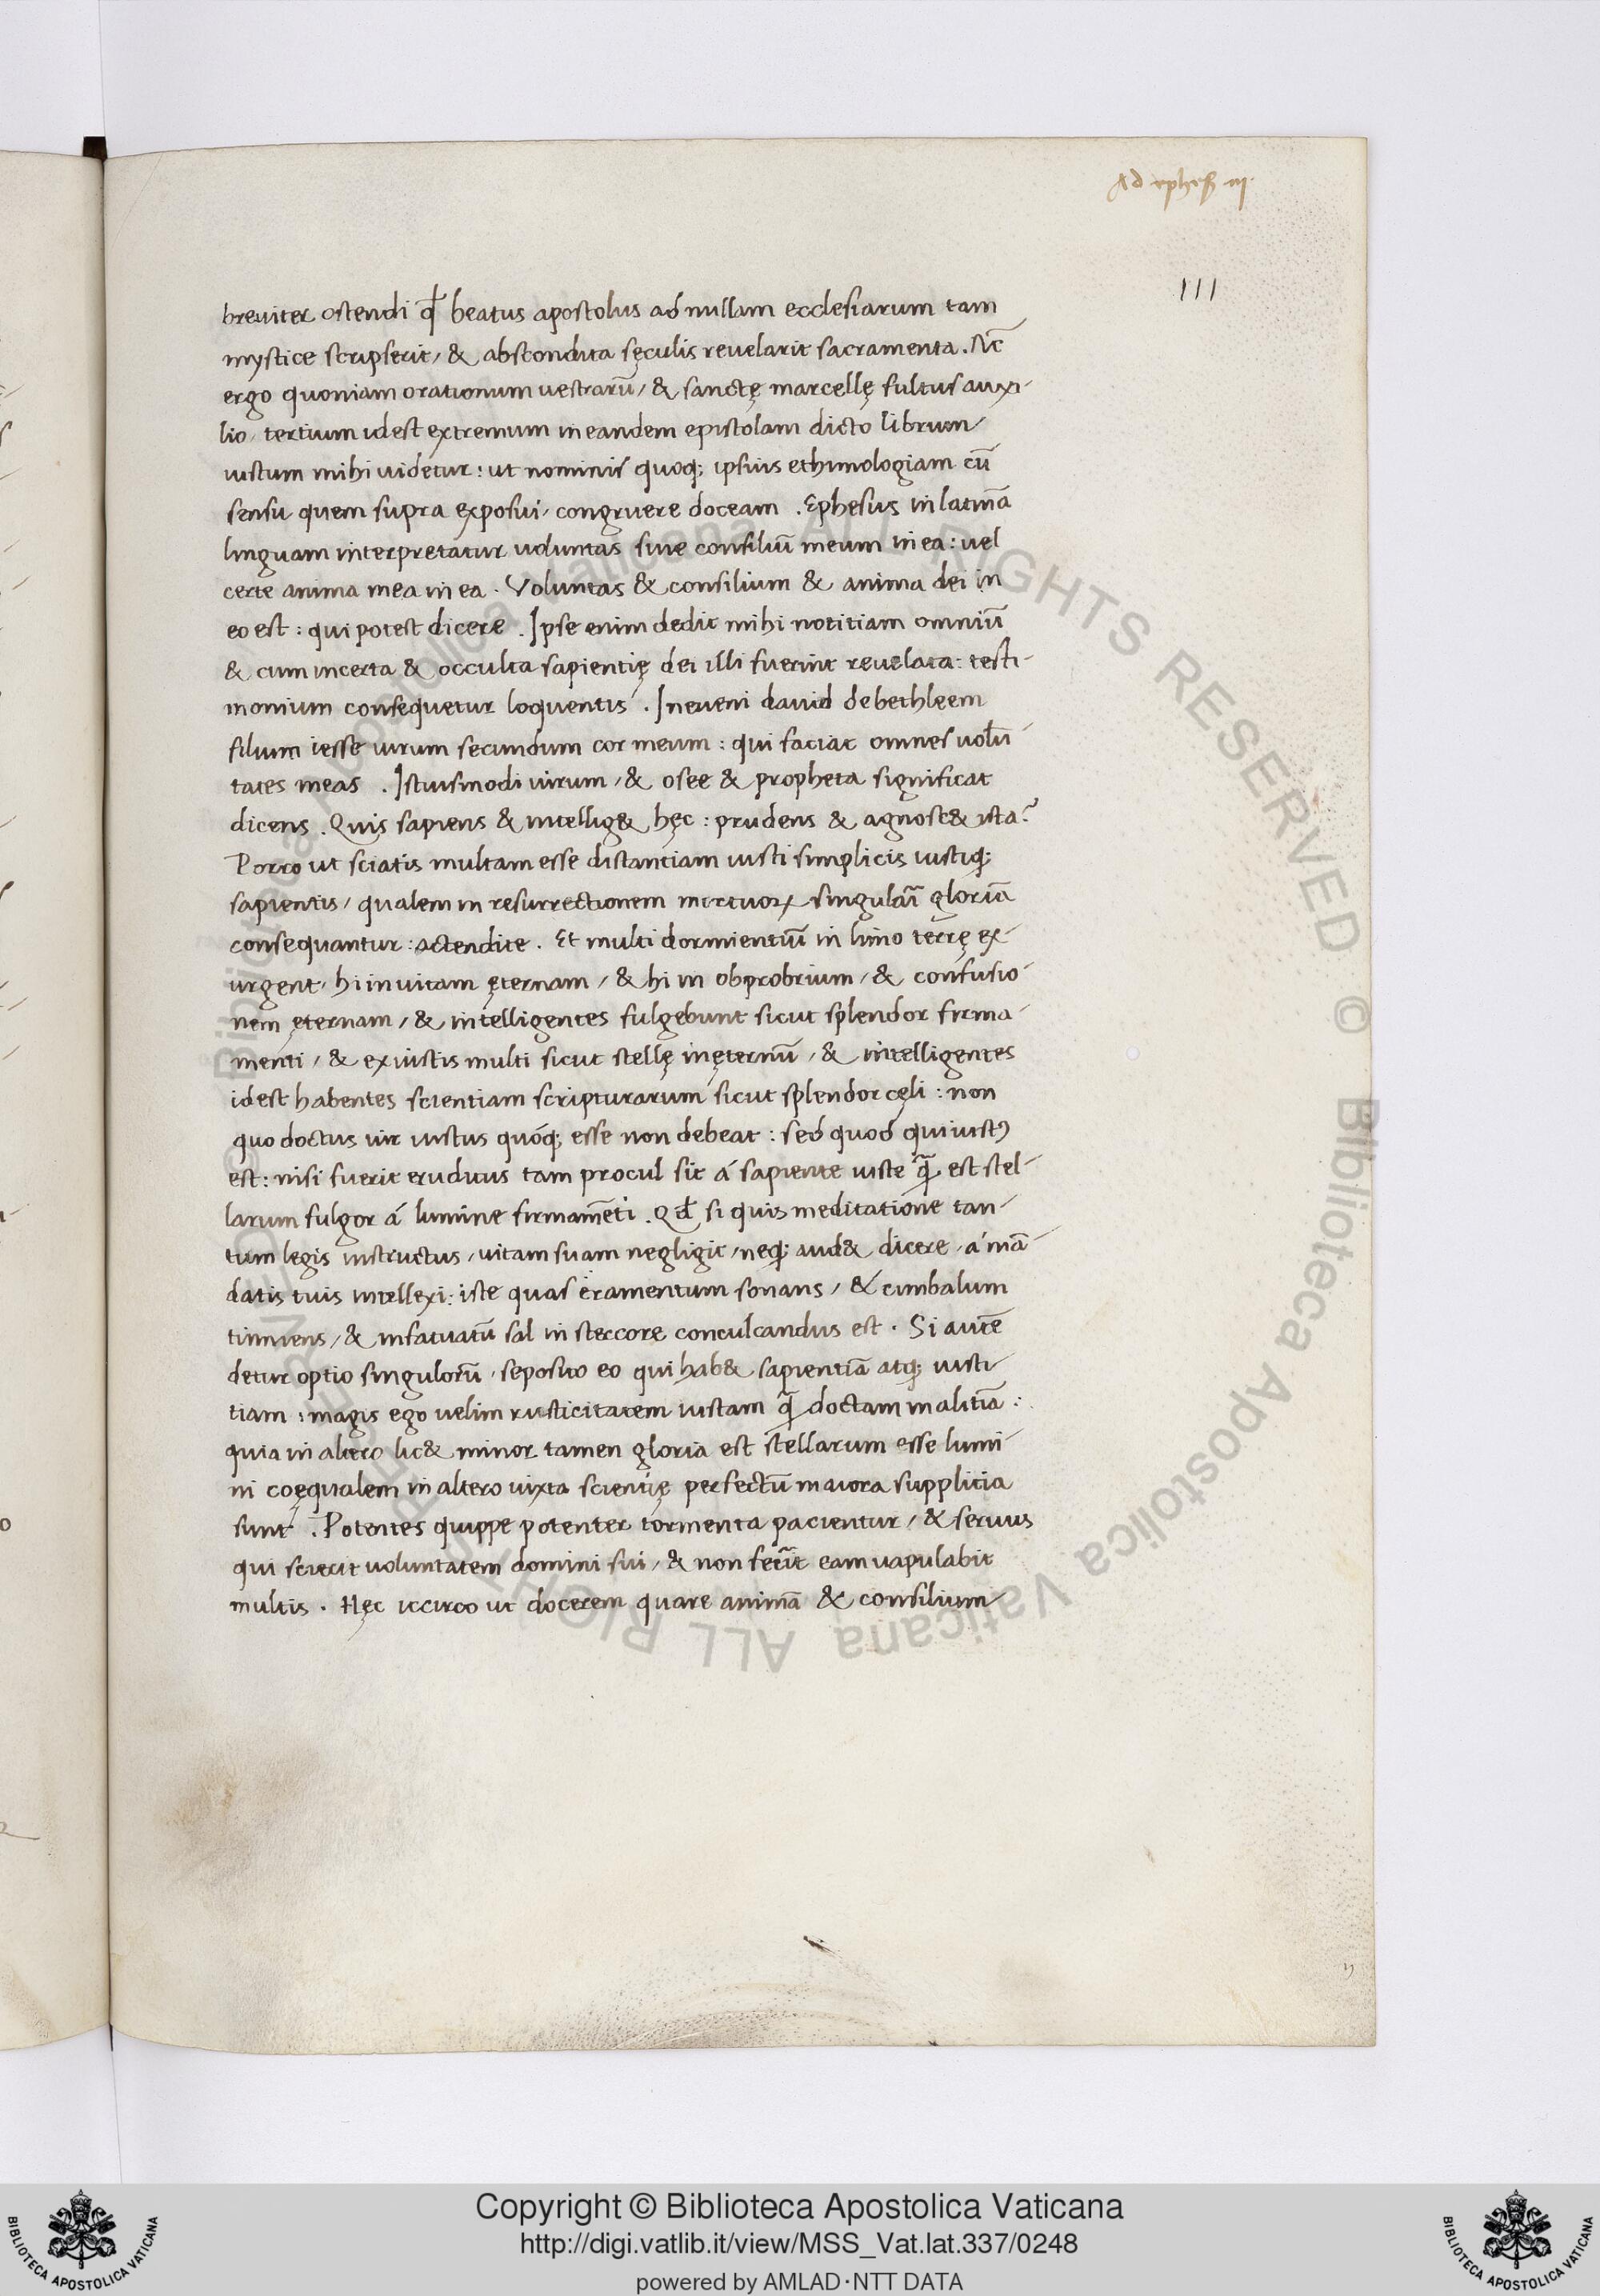 Ad ephes. iii.
III
breuiter ostendi qđ beatus apostolus ad nullam ecclesiarum tam
mystice scripserit, & abscondita sęculis reuelarit sacramenta. Nc̄
ergo quoniam orationum uestrarū, & sanctę marcellę fultus auxi-
lio, tertium idest extremum in eandem epistolam dicto librum
iustum mihi uidetur: ut nominis quoq; ipsius ethimologiam cū
sensu quem supra exposui, congruere doceam. Ephesus in latinā
linguam interpretatur uoluntas siue consiliū meum in ea: uel
certe anima mea in ea. Voluntas & consilium & anima dei in
eo est: qui potest dicere. Ipse enim dedit mihi notitiam omniū
& cum incerta & occulta sapientię dei illi fuerint reuelata: testi-
monium consequetur loquentis. Inueni dauid de bethleem
filium iesse uirum secundum cor meum: qui faciat omnes uolū-
tates meas. Istiusmodi uirum, & osee & propheta significat
dicens. Quis sapiens & intellig& hęc: prudens & agnosc& ista?
Porro ut sciatis multam esse distantiam iusti simplicis iustiq;
sapientis, qualem in resurrectionem mortuoꝝ singulāi gloriā
consequantur: attendite. Et multi dormientiū in limo terrę ex-
urgent, hi in uitam ęternam, & hi in obprobrium, & confusio-
nem ęternam, & intelligentes fulgebunt sicut splendor firma-
menti, & ex iustis multi sicut stellę in ęternū, & intelligentes
idest habentes scientiam scripturarum sicut splendor cęli: non
quo doctus uir iustus quóq; esse non debeat: sed quod qui iustꝰ
est: nisi fuerit eruditus tam procul sit á sapiente iuste q̄ est stel-
larum fulgor á lumine firmamēti. Qđ si quis meditatione tan-
tum legis instructus, uitam suam negligit, neq; aud& dicere, a mā-
datis tuis intellexi: iste quasi eramentum sonans, & cimbalum
tinniens, & infatuatū sal in stercore conculcandus est. Si autē
detur optio singulorū, seposito eo qui hab& sapientiā atq; iusti-
tiam: magis ego uelim rusticitatem iustam q̄ doctam malitiā:
quia in altero lic& minor tamen gloria est stellarum esse lumi-
ni coęqualem in altero iuxta scientię perfectū maiora supplicia
sunt. Potentes quippe potenter tormenta pacientur, & seruus
qui scierit uoluntatem domini sui, & non fecīt eam uapulabit
multis. Hęc iccirco ut docerem quare animā & consilium
Copyright © Biblioteca Apostolica Vaticana
http://digi.vatlib.it/view/MSS_Vat.lat.337/0248
powered by AMLAD·NTT DATA